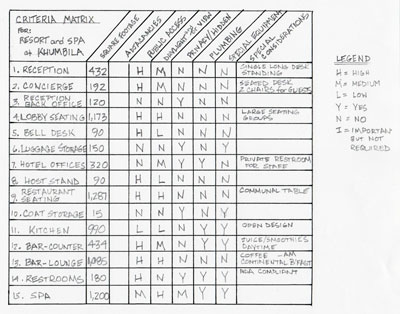 CRITERIA MATRIX
FOR:
RESORT and SPA
at KHUMBILA
SQUARE FOOTAGE
ADJACENCIES
PUBLIC ACCESS
DAYLIGHT VIEW
PRIVACY/HIDDEN
PLUMBING
SPECIAL EQUIPMENT
SPECIAL CONSIDERATIONS
1. RECEPTION 432 H M N N N SINGLE LONG DESK
STANDING
2. CONCIERGE 192 H M N N N SEATED DESK
2 CHAIRS for GUESTS
3. RECEPTION
BACK OFFICE 120 N N Y N N
4. LOBBY SEATING 1,173 H H N N N LARGE SEATING
GROUPS
5. BELL DESK 90 H L N N N
6. LUGGAGE STORAGE 150 N N Y N
7. HOTEL OFFICES 320 N M Y Y N PRIVATE RESTROOM
FOR STAFF
8. HOST STAND 90 H L N N N
9. RESTAURANT
SEATING 1,287 H H N N N COMMUNAL TABLE
10. COAT STORAGE 15 N N Y N Y
11. KITCHEN 990 L L N Y Y OPEN DESIGN
12. BAR-COUNTER 434 H M N Y Y JUICE/SMOOTHIES
DAYTIME
13. BAR-LOUNGE 1,085 H H N N N COFFEE -AM
CONTINENTAL B'FAST
14. RESTROOMS 180 H N Y Y Y ADA COMPLIANT
15. SPA 1,200 M H M Y Y
LEGEND
H = HIGH
M = MEDIUM
L = LOW
Y = YES
N = NO
I = IMPORTANT
BUT NOT
REQUIRED